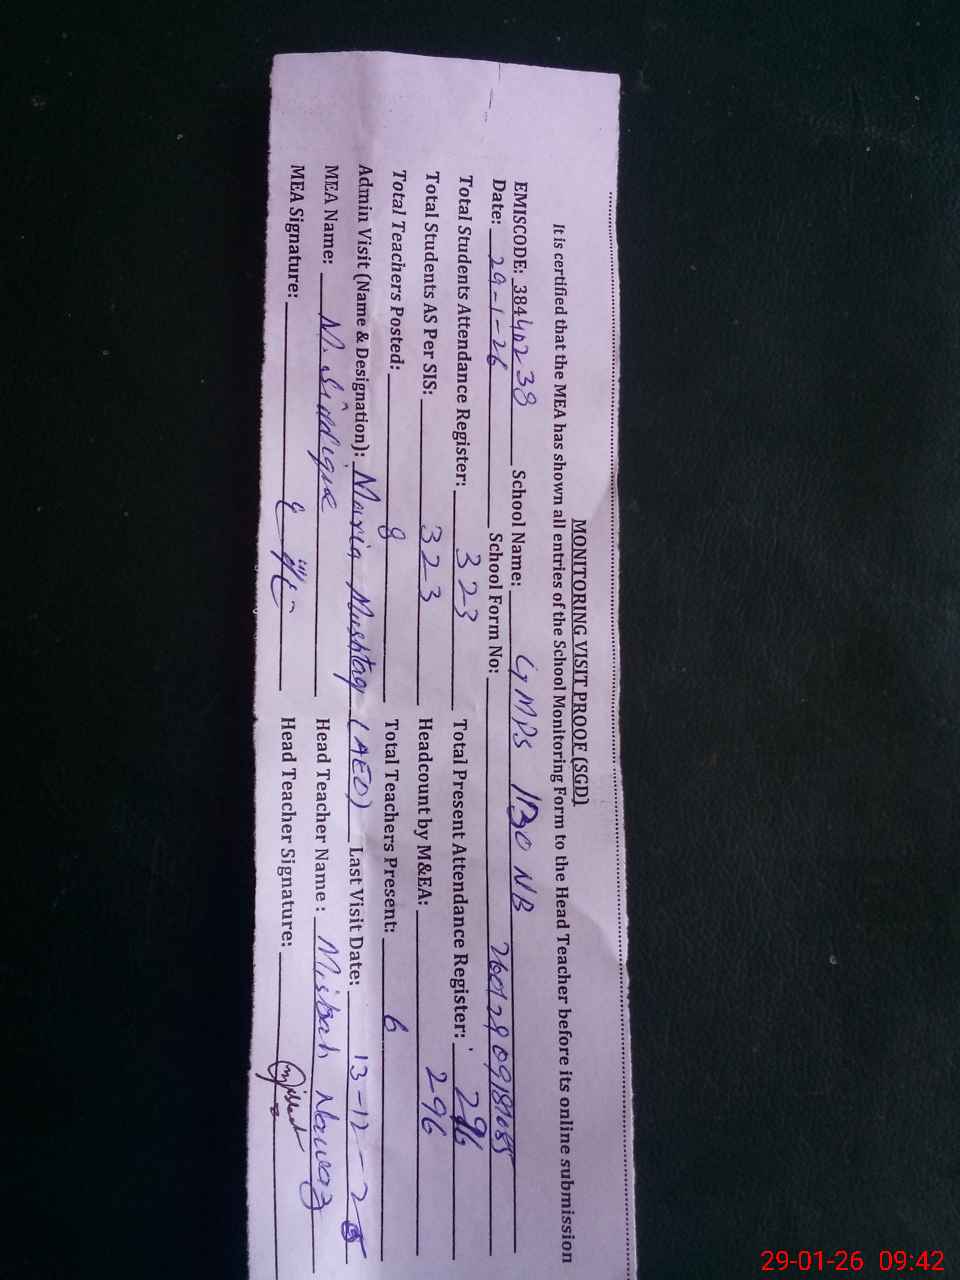 MONITORING VISIT PROOF (SGD)
It is certified that the MEA has shown all entries of the School Monitoring Form to the Head Teacher before its online submission
EMISCODE: 38440238 School Name: GMPS 130 NB
Date: 29-1-26 School Form No:
Total Students Attendance Register: 323 Total Present Attendance Register: 296
Total Students AS Per SIS: 323 Headcount by M&EA: 296
Total Teachers Posted: 8 Total Teachers Present: 6
Admin Visit (Name & Designation): Maria Mushtaq (AEO) Last Visit Date: 13-12-25
MEA Name: M. Siddique Head Teacher Name: Misbah Nawaz
MEA Signature: Head Teacher Signature:
29-01-26 09:42